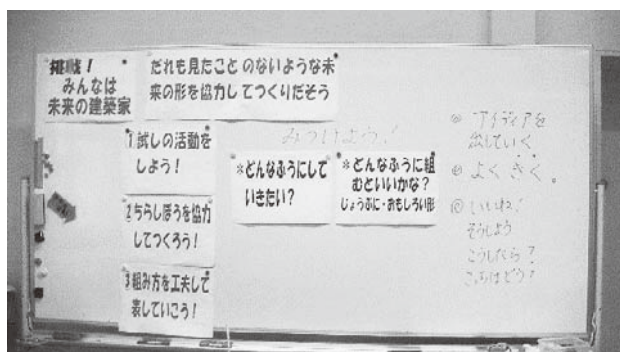 挑戦！
みんなは
未来の建築家
だれも見たこと のないような未
来の形を協力してつくりだそう
1試しの活動を
しよう！
2ちらしぼうを協力
してつくろう！
3組み方を工夫して
表していこう！
みつけよう！
*どんなふうにして
いきたい？
*どんなふうに組
むといいかな？
じょうぶに・おもしろい形
アイディアを
出していく
よくきく。
いいね！
そうしよう
こうしたら？
こっちはどう？